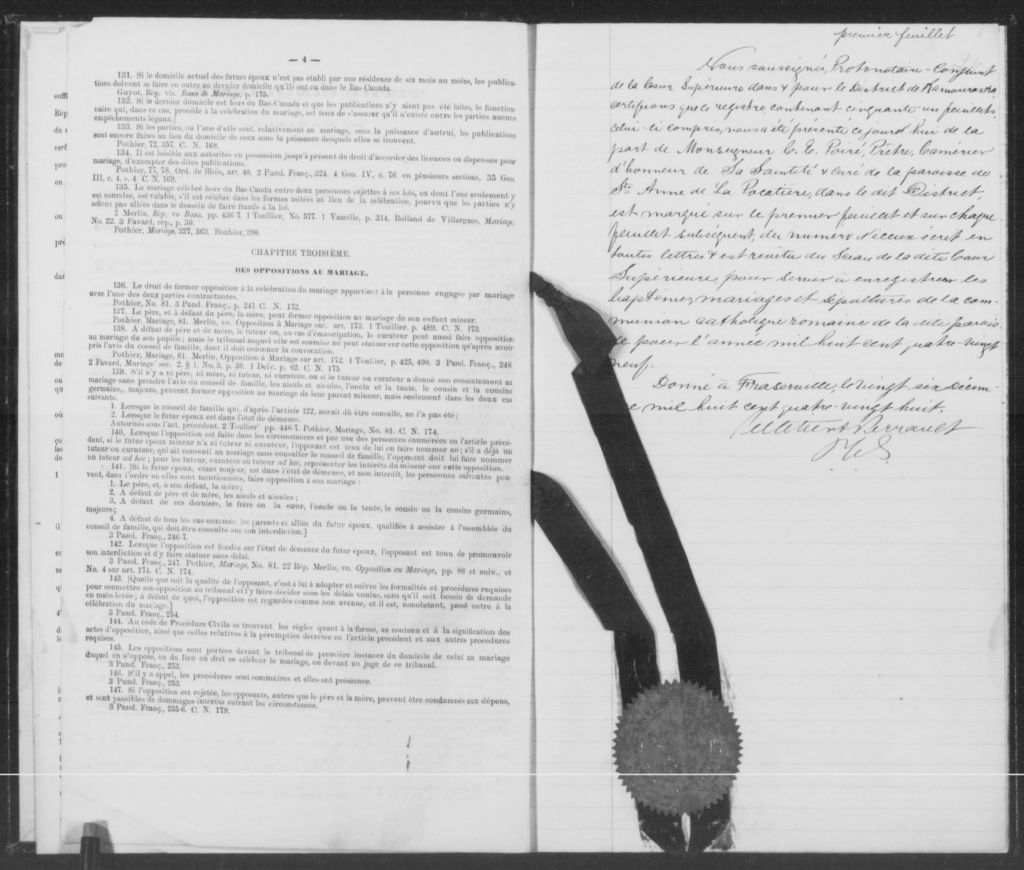 — 4 —
131. Si le domicile actuel des futurs époux n'est pas établi par une résidence de six mois au moins, les publica-
tions doivent se faire en outre au dernier domicile qu'ils ont eu dans le Bas-Canada.
Guyot, Rep. vis. Bans de Mariage, p. 175.
132. Si le dernier domicile est hors du Bas-Canada et que les publications n'y aient pas été faites, le fonction-
naire qui, dans ce cas, procède à la célébration du mariage, est tenu de s'assurer qu'il n'existe entre les parties aucuns
empêchements légaux.
133. Si les parties, ou l'une d'elle sont, relativement au mariage, sous la puissance d'autrui, les publications
sont encore faites au lieu du domicile de ceux sous la puissance desquels elles se trouvent.
Pothier, 72, 357. C. N. 168.
134. Il est loisible aux autorités en possession jusqu'à présent du droit d'accorder des licences ou dispenses pour
mariage, d'exempter des dites publications.
Pothier, 77, 78. Ord. de Blois, art. 40. 2 Pand. Franç., 324. 4 Geo. IV, c. 76 en plusieurs sections, 35 Geo.
III, c. 4. s. 4 C. N. 169.
135. Le mariage célébré hors du Bas-Canda entre deux personnes sujettes à ses lois, ou dont l'une seulement y
est soumise, est valable, s'il est célébré dans les formes usitées au lieu de la célébration, pourvu que les parties n'y
soient pas allées dans le dessein de faire fraude à la loi.
2 Merlin, Rep. vo Bans. pp. 436-7. 1 Toullier, No. 577. 1 Vazeille, p. 314. Rolland de Villargues, Mariage,
No. 22. 3 Favard, rep., p. 30.
Pothier, Mariage, 327, 363. Bouhier, 390.
CHAPITRE TROISIÈME.
DES OPPOSITIONS AU MARIAGE.
136. Le droit de former opposition à la célébration du mariage appartient à la personne engagée par mariage
avec l'une des deux parties contractantes.
Pothier, No. 81. 3 Pand. Franç., p. 241 C. N. 172.
137. Le père, et à défaut du père, la mère, peut former opposition au mariage de son enfant mineur.
Pothier, Mariage, 81. Merlin, vo. Opposition à Mariage sur. art. 173. 1 Toullier. p. 489. C. N. 173.
138. A défaut de père et de mère, le tuteur ou, au cas d'émancipation, le curateur peut aussi faire opposition
au mariage de son pupile; mais le tribunal auquel elle est soumise ne peut statuer sur cette opposition qu'après avoir
pris l'avis du conseil de famille, dont il doit ordonner la convocation.
Pothier, Mariage, 81. Merlin, Opposition à Mariage sur art. 172. 1 Toullier, p. 425, 490. 3 Pand. Franç., 248
2 Favard, Mariage sec. 2. § 1, No. 3, p. 59. 1 Delv. p. 62. C. N. 175
139. S'il n'y a ni père, ni mère, ni tuteur, ni curateur, ou si le tuteur ou curateur a donné son consentement au
mariage sans prendre l'avis du conseil de famille, les aïeuls et aïeules, l'oncle et la tante, le cousin et la cousine
germains, majeurs, peuvent former opposition au mariage de leur parent mineur, mais seulement dans les deux cas
suivants.
1. Lorsque le conseil de famille qui, d'après l'article 122, aurait dû être consulté, ne l'a pas été;
2. Lorsque le futur époux est dans l'état de démence.
Autorités sous l'art. précédent. 2 Toullier pp. 446-7. Pothier, Mariage, No. 81. C. N. 174.
140. Lorsque l'opposition est faite dans les circonstances et par une des personnes énumérées en l'article précé-
dent, si le futur époux mineur n'a ni tuteur ni curateur, l'opposant est tenu de lui en faire nommer un; s'il a déjà un
tuteur ou curateur, qui ait consenti au mariage sans consulter le conseil de famille, l'opposant doit lui faire nommer
un tuteur ad hoc; pour les tuteur, curateur ou tuteur ad hoc, représenter les intérêts du mineur sur cette opposition.
141. [Si le futur époux, étant majeur, est dans l'état de démence, et non interdit, les personnes suivantes peu-
vent, dans l'ordre où elles sont mentionnées, faire opposition à son mariage:
1. Le père, et, à son défaut, la mère;
2. A défaut de père et de mère, les aïeuls et aïeules;
3. A défaut de ces derniers, le frère ou la sœur, l'oncle ou la tante, le cousin ou la cousine germains,
majeurs;
4. A défaut de tous les sus-nommés, les parents et alliés du futur époux, qualifiés à assister à l'assemblée du
conseil de famille, qui doit être consulté sur son interdiction.]
3 Pand. Franç., 246-7.
142. Lorsque l'opposition est fondée sur l'état de démence du futur époux, l'opposant est tenu de promouvoir
son interdiction et d'y faire statuer sans délai.
3 Pand. Franç., 247. Pothier, Mariage, No. 81. 22 Rép. Merlin, vo. Opposition au Mariage, pp. 88 et suiv., et
No. 4 sur art. 174. C. N. 174.
143. [Quelle que soit la qualité de l'opposant, c'est à lui à adopter et suivre les formalités et procédures requises
pour soumettre son opposition au tribunal et l'y faire décider sous les délais voulus, sans qu'il soit besoin de demande
en main-levée; à défaut de quoi, l'opposition est regardée comme non avenue, et il est, nonobstant, passé outre à la
célébration du mariage.]
3 Pand. Franç., 254.
144. Au code de Procédure Civile se trouvent les règles quant à la forme, au contenu et à la signification des
actes d'opposition, ainsi que celles relatives à la péremption décrétée en l'article précédent et aux autres procédures
requises.
145. Les oppositions sont portées devant le tribunal de première instance du domicile de celui au mariage
duquel on s'oppose, ou du lieu où doit se célébrer le mariage, ou devant un juge de ce tribunal.
3 Pand. Franç., 253.
146. S'il y a appel, les procédures sont sommaires et elles ont préséance.
3 Pand. Franç., 253.
147. Si l'opposition est rejetée, les opposants, autres que le père et la mère, peuvent être condamnés aux dépens,
et sont passibles de dommages-intérêts suivant les circonstances.
3 Pand. Franç., 255-6. C. N. 179.
premier feuillet
Nous soussignés, Protonotaire-Conjoint
de la Cour Supérieure dans & pour le District de Kamouraska
certifions que le registre, contenant cinquante un feuillets
celui-ci compris, nous a été présenté ce jourd'hui de la
part de Monseigneur C. E. Poiré, Prêtre, Camérier
d'honneur de Sa Sainteté & Curé de la paroisse de
Ste Anne de La Pocatière, dans le dit District
est marqué sur le premier feuillet et sur chaque
feuillet subséquent, du numéro d'iceux écrit en
toutes lettres & est revêtu du Sceau de la dite Cour
Supérieure pour servir à enregistrer les
baptêmes, mariages et sépultures de la com-
munion catholique romaine de la dite parois-
se pour l'année mil huit cent quatre-vingt
neuf.
Donné à Fraserville, le vingt six décem-
e mil huit cent quatre-vingt huit.
Pelletier & Perrault
P.C.S.